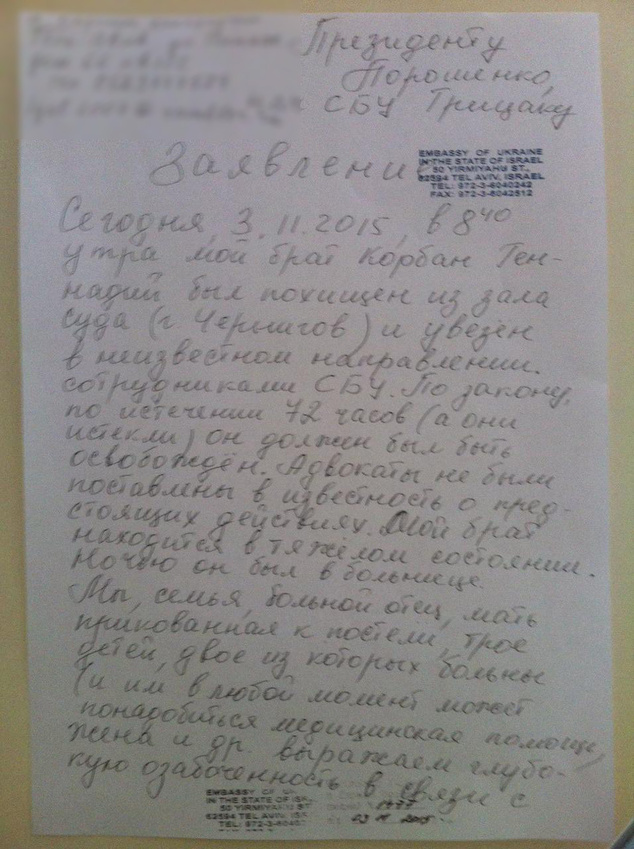 Президенту
Порошенко,
СБУ Грицаку
Заявлени
EMBASSY OF UKRAINE
IN THE STATE OF ISRAEL
50 YIRMIYAHU ST.,
62594 TEL AVIV, ISRAEL
TEL: 972-3-6040242
FAX: 972-3-6042512
Сегодня, 3.11.2015, в 8 40
утра мой брат Корбан Ген-
надий был похищен из зала
суда (г. Чернигов) и увезён
в неизвестном направлении.
сотрудниками СБУ. По закону,
по истечении 72 часов (а они
истекли) он должен был быть
освобождён. Адвокаты не были
поставлены в известность о пред-
стоящих действиях. Мой брат
находится в тяжелом состоянии.
Ночью он был в больнице.
Мы, семья, больной отец, мать
прикованная к постели, трое
детей, двое из которых больны
(и им в любой момент может
понадобиться медицинская помощь,
жена и др. выражаем глубо-
кую озабоченность в связи с
EMBASSY OF
IN THE STATE OF ISR
50 YIRMIYAHU ST
62594 TEL AVIV, IS
TEL: 972-3-6040